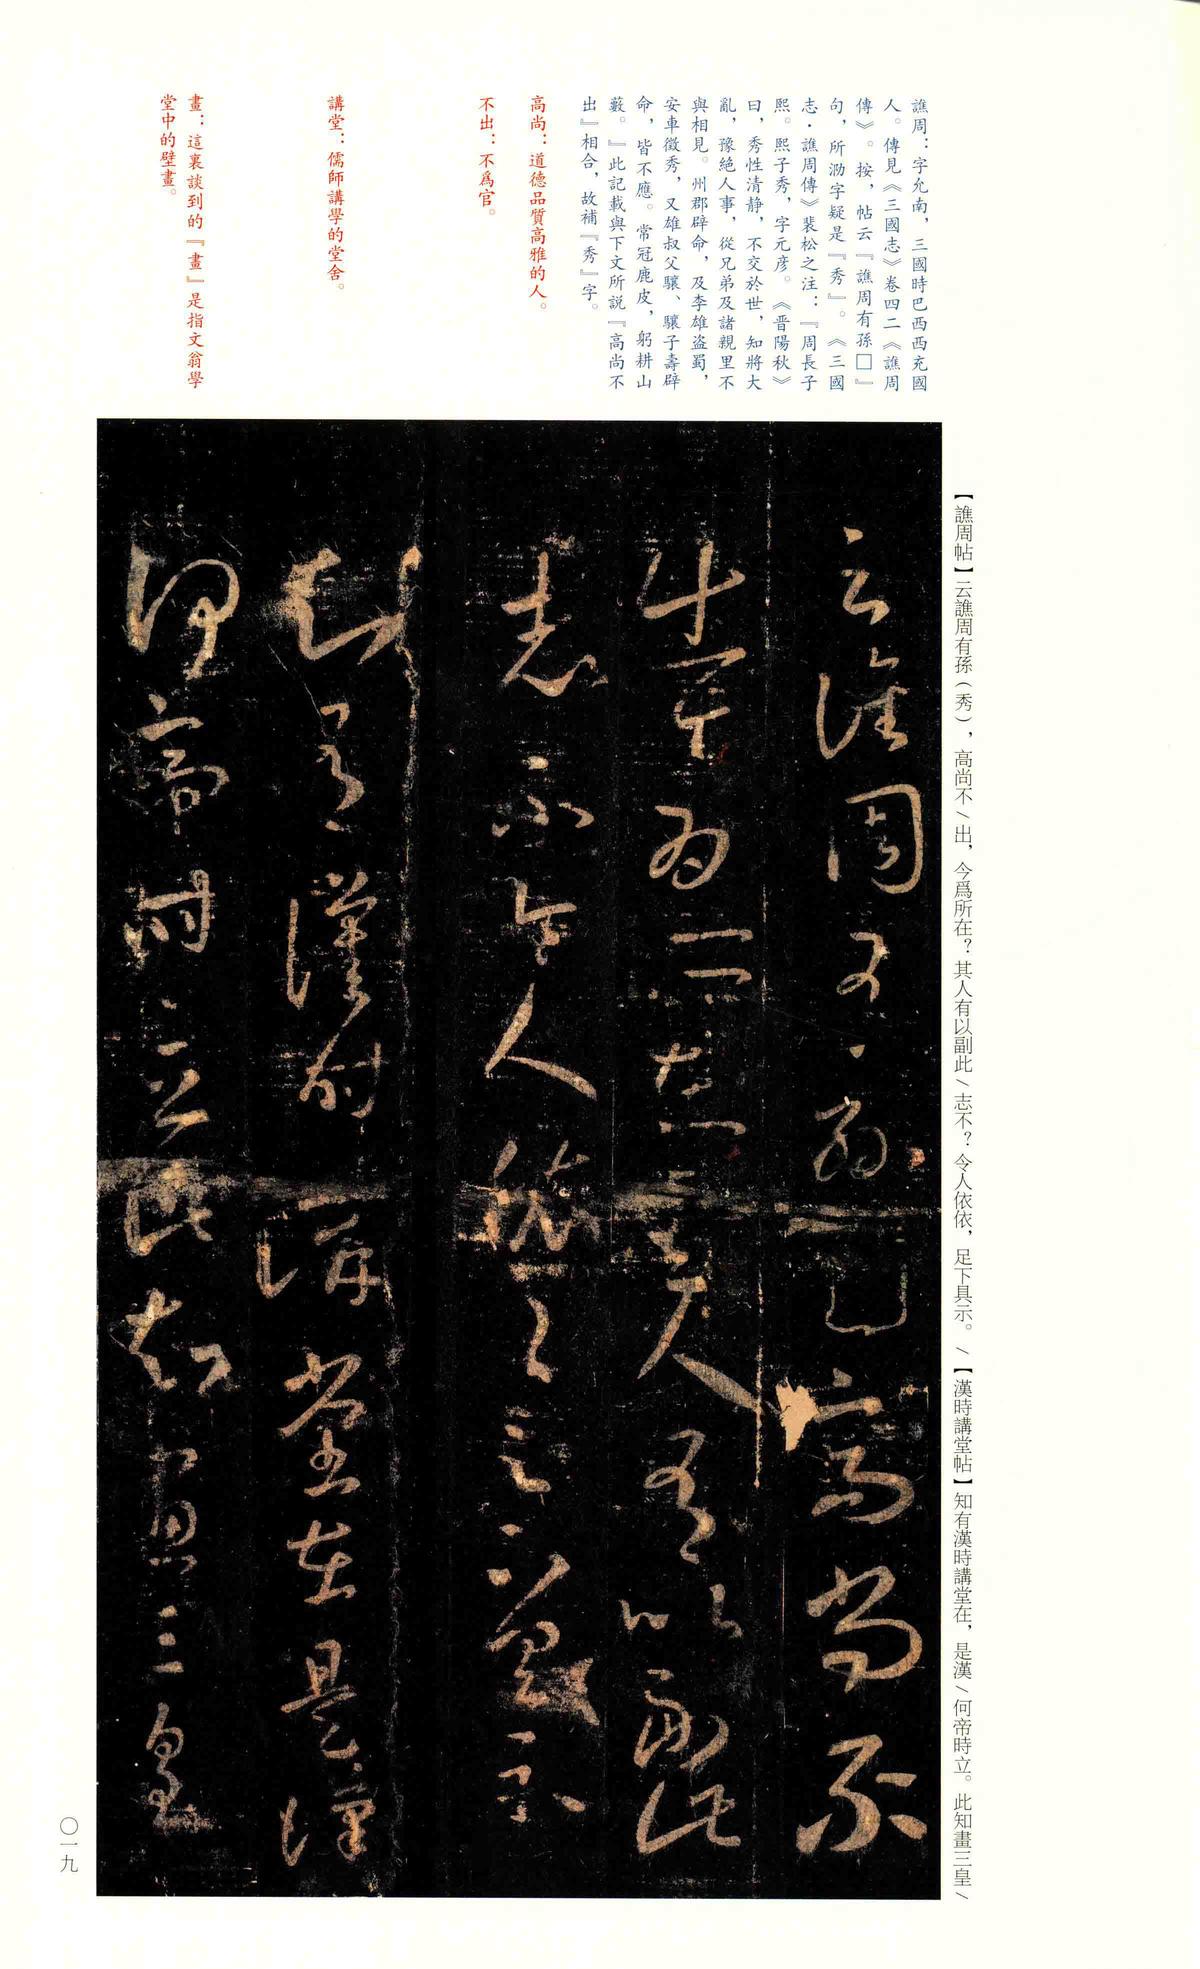 譙周：字允南，三國時巴西西充國
人。傳見《三國志》卷四二《譙周
傳》。按，帖云『譙周有孫□』
句，所泐字疑是『秀』。《三國
志·譙周傳》裴松之注：『周長子
熙。熙子秀，字元彦。《晋陽秋》
曰，秀性清静，不交於世，知將大
亂，豫絶人事，從兄弟及諸親里不
與相見。州郡辟命，及李雄盗蜀，
安車徵秀，又雄叔父驤、驤子壽辟
命，皆不應。常冠鹿皮，躬耕山
藪。』此記載與下文所説『高尚不
出』相合，故補『秀』字。
高尚：道德品質高雅的人。
不出：不爲官。
講堂：儒師講學的堂舍。
畫：這裏談到的『畫』是指文翁學
堂中的壁畫。
【譙周帖】云譙周有孫（秀），高尚不/出，今爲所在？其人有以副此/志不？令人依依，足下具示。/【漢時講堂帖】知有漢時講堂在，是漢/何帝時立。此知畫三皇/
云譙周有孫高尚不
出今爲所在其人有以副此
志不令人依依足下具示
知有漢時講堂在是漢
何帝時立此知畫三皇
〇一九